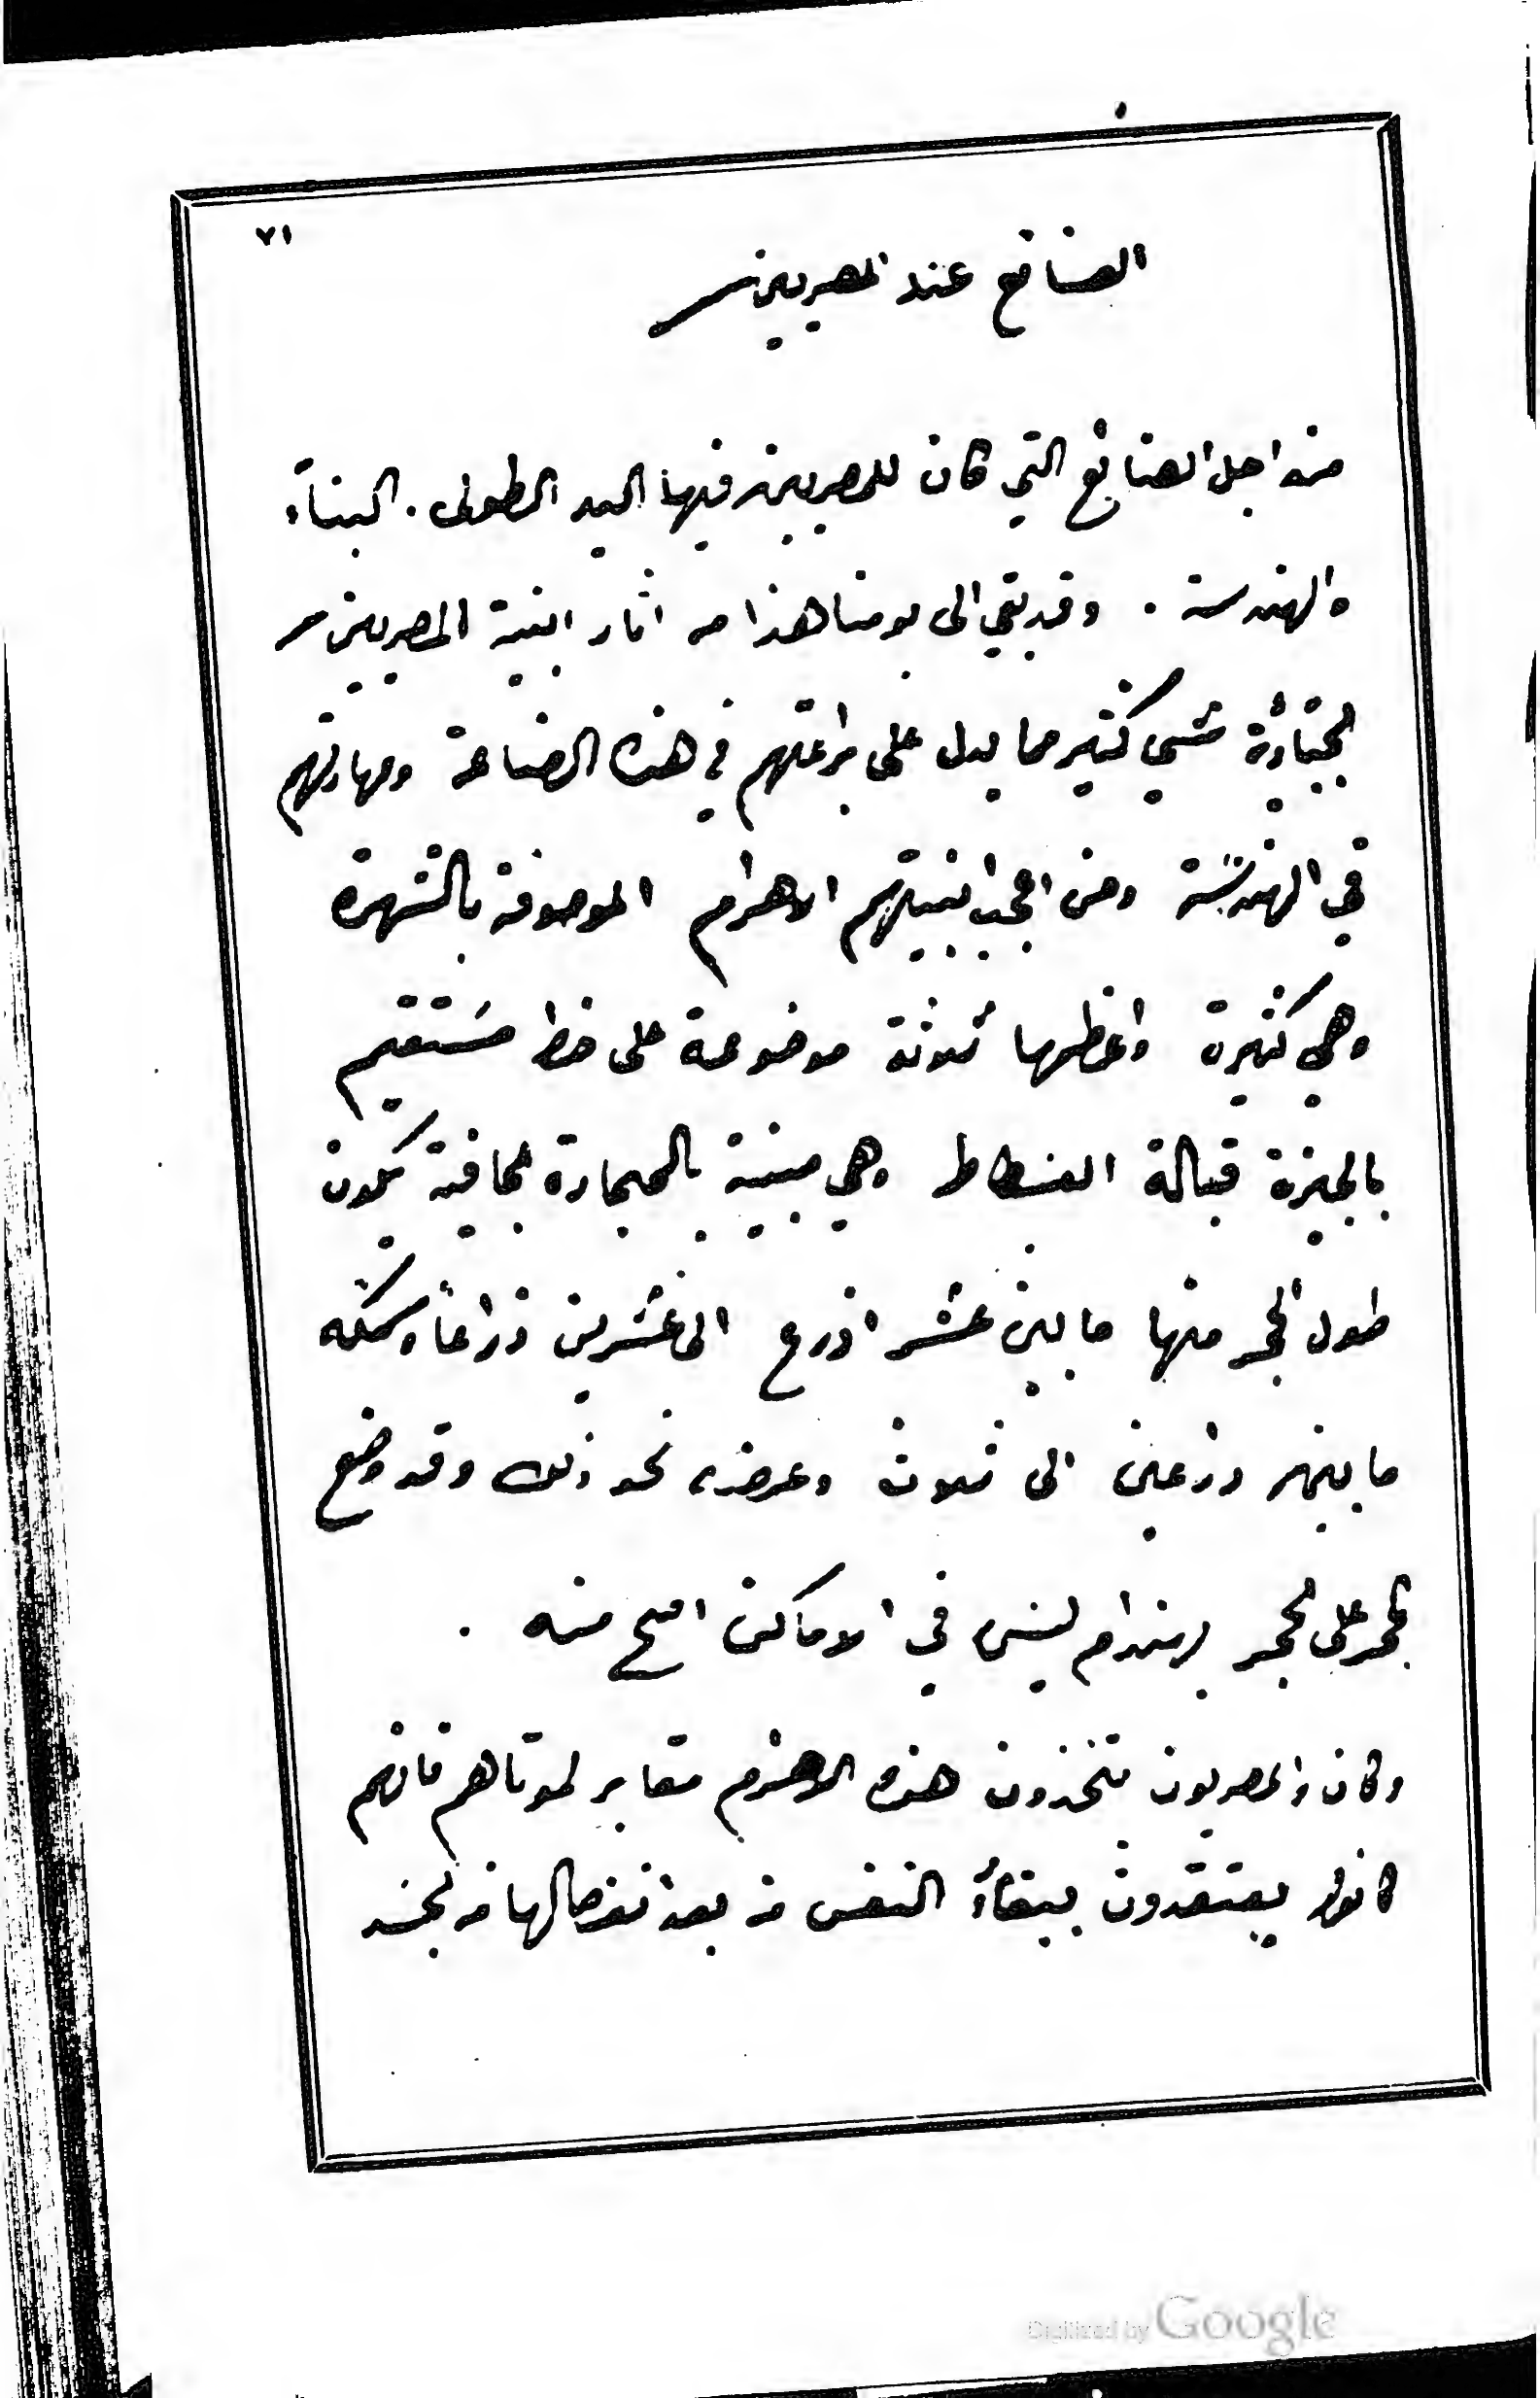 ٧١
الصنائع عند المصريين
من اجل الصنائع التي كان للمصريين فيها اليد الطولى . البناء
والهندسة . وقد بقي الى يومنا هذا من اثار ابنية المصريين
شي كثير مما يدل على براعتهم في هذه الصناعة ومهارتهم
في الهندسة ومن اعجب ابنيتهم الاهرام الموصوفة بالشهرة
وهي كثيرة واعظمها ثلاثة موضوعة على خط مستقيم
بالجيزة قبالة الفسطاط وهي مبنية بالحجارة الجافية يكون
طول الحجر منها ما بين عشر اذرع الى عشرين ذراعاً وسمكه
ما بين ذراعين الى ثلاث وعرضه نحو ذلك وقد وضع
الحجر على الحجر بهندام ليس في الاماكن اصح منه .
وكان المصريون يتخذون هذه الاهرام مقابر لموتاهم فانهم
كانوا يعتقدون ببقاء النفس من بعد انفصالها من الجسد
Digitized by Google